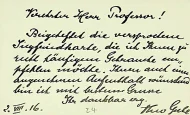 Verehrter Herr Professor!
Beigeheftet die versprochene
Siegfriedkarte, die ich Ihnen zu
recht häufigem Gebrauche em-
pfehlen möchte. Ihnen auch einen
angenehmen Aufenthalt wünschend
bin ich mit bestem Grusse
Ihr dankbarer
2. VIII. 16.
24